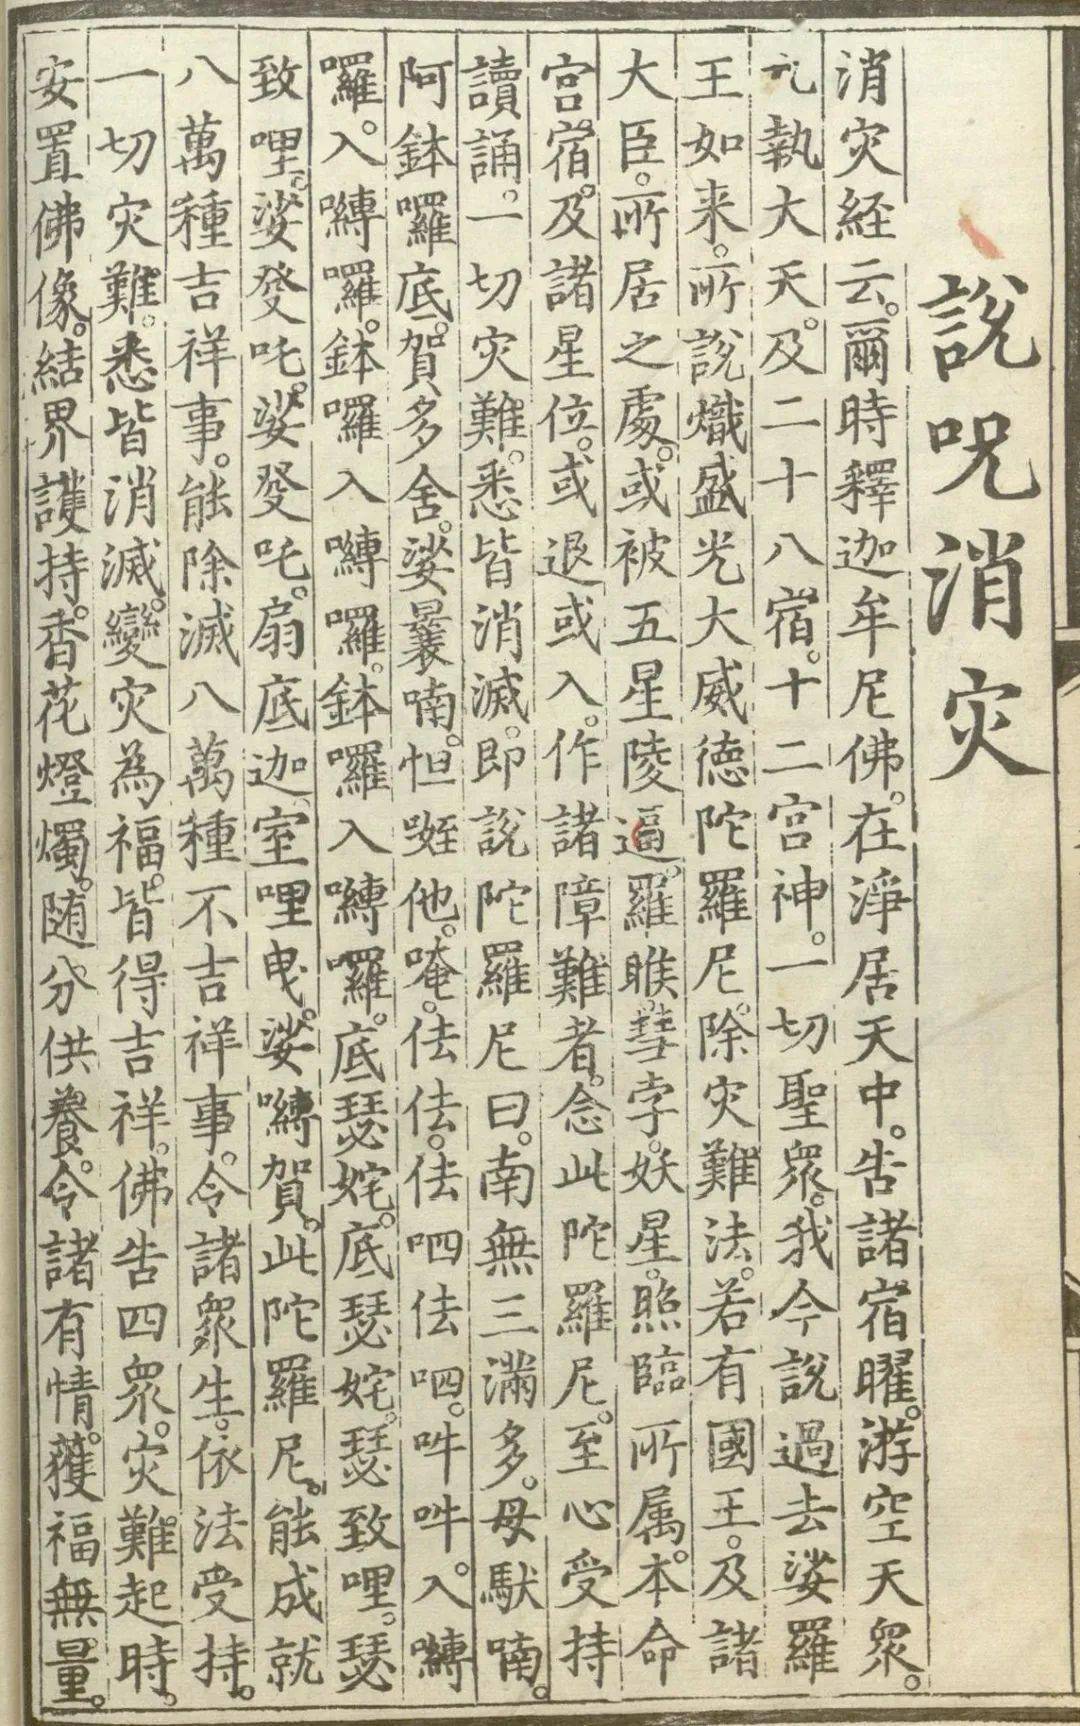 說呪消灾
消灾経云。爾時釋迦牟尼佛。在淨居天中。告諸宿曜。游空天衆。
九執大天。及二十八宿。十二宮神。一切聖衆。我今說過去娑羅
王如来。所說熾盛光大威德陀羅尼。除灾難法。若有國王。及諸
大臣。所居之處。或被五星陵逼。羅睺。彗孛。妖星。照臨所属。本命
宮宿。及諸星位。或退或入。作諸障難者。念此陀羅尼。至心受持
讀誦。一切灾難。悉皆消滅。即說陀羅尼曰。南無三滿多。母馱喃。
阿鉢囉底。賀多舍。娑曩喃。怛姪他。唵。佉佉。佉呬佉呬。吽吽。入嚩
囉。入嚩囉。鉢囉入嚩囉。鉢囉入嚩囉。底瑟姹。底瑟姹。瑟致哩。瑟
致哩。娑癹吒。娑癹吒。扇底迦。室哩曳。娑嚩賀。此陀羅尼。能成就
八萬種吉祥事。能除滅八萬種不吉祥事。令諸衆生。依法受持。
一切灾難。悉皆消滅。變灾為福。皆得吉祥。佛告四衆。灾難起時。
安置佛像。結界護持。香花燈燭。随分供養。令諸有情。獲福無量。